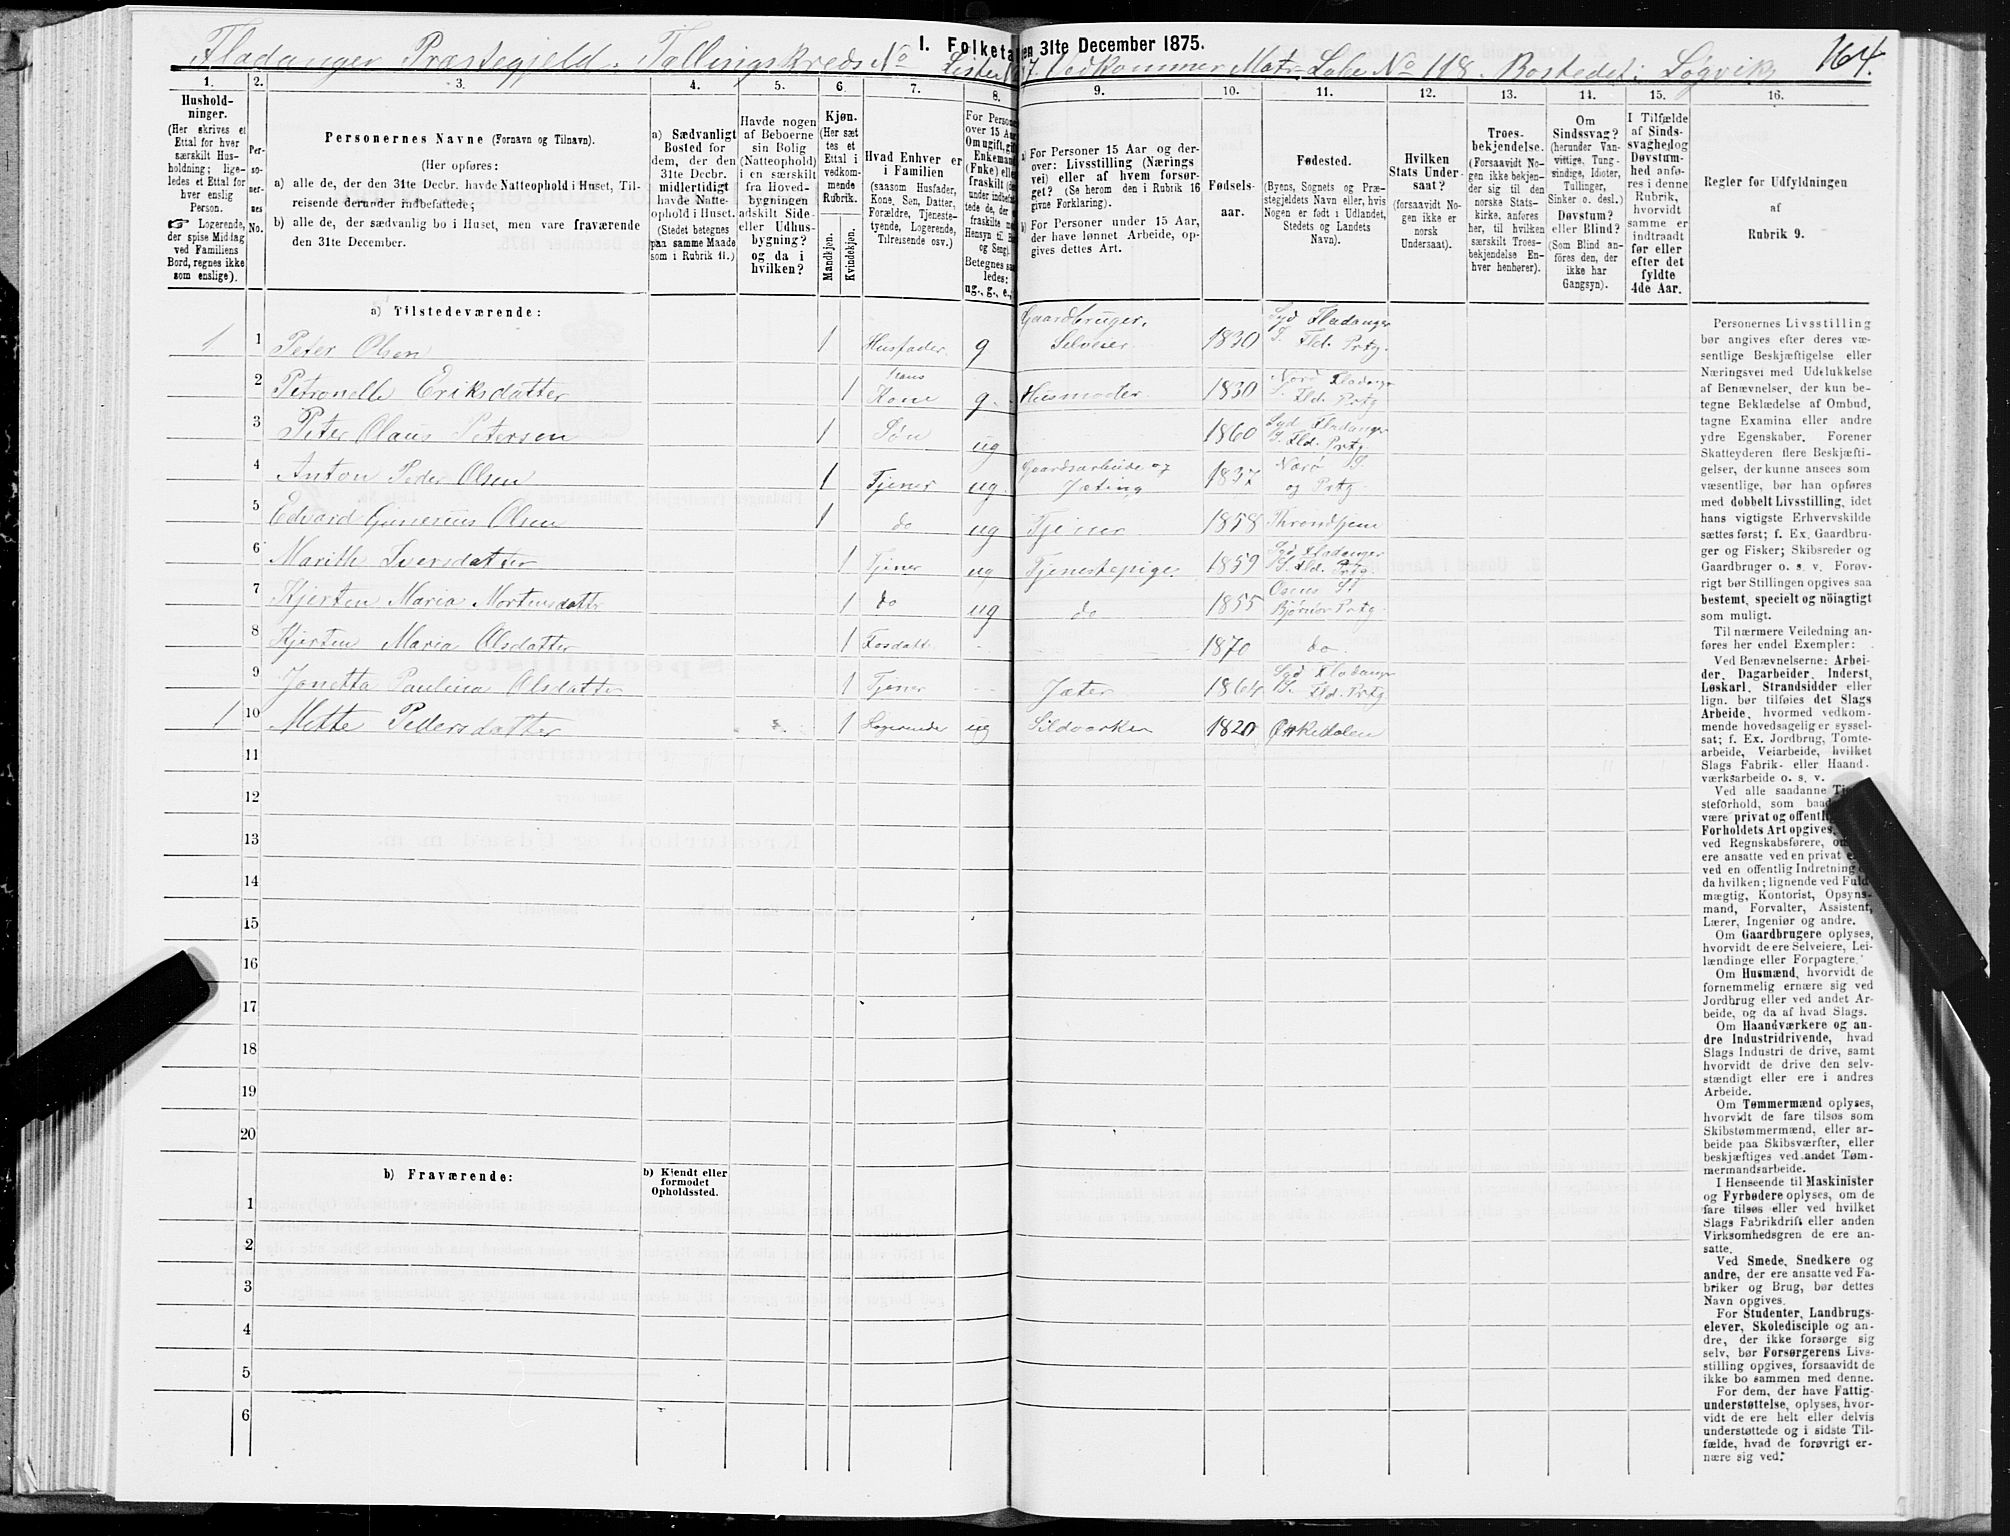 164.
I. Folketa en 31te December 1875.
Fladanger Præstegjeld. Tællingskreds No Liste No 7 Vedkommer Matr. Løbe No 118. Bostedet: Løgvik
1. 2. 3. 4. 5. 6. 7. 8. 9. 10. 11. 12. 13. 14. 15. 16.
Hushold-
ninger.
(Her skrives et
Ettal for hver
særskilt Hus-
holdning; lige-
ledes et Ettal for
hver enslig
Person.
☞ Logerende,
der spise Middag
ved Familiens
Bord, regnes ikke
som enslige).
Per-
so-
ner-
nes
No.
Personernes Navne (Fornavn og Tilnavn).
(Her opføres:
a) alle de, der den 31te Decbr. havde Natteophold i Huset, Til-
reisende derunder indbefattede;
b) alle de, der sædvanlig bo i Huset, men vare fraværende
den 31te December.
a) Sædvanligt
Bosted for
dem, der den
31te Decbr.
midlertidigt
havde Natte-
ophold i Huset.
(Stedet betegnes
paa samme Maade
som i Rubrik 11.)
Havde nogen
af Beboerne
sin Bolig
(Natteophold)
i en særskilt
fra Hoved-
bygningen
adskilt Side-
eller Udhus-
bygning?
og da i
hvilken?
Kjøn.
(Her sæt
tes et
Ettal i
vedkom-
mende
Rubrik.
Mandkjøn.
Kvindekjøn.
Hvad Enhver er
i Familien
(saasom Husfader,
Kone, Søn, Datter,
Forældre, Tjeneste-
tyende, Logerende,
Tilreisende osv.)
For Persone
over 15 Aar
Om ugift, gift
Enkemand
(Fnke) eller
fraskilt (der
under indbefat
tede de, der e
fraskilte med
Hensyn til Bo
og Seng).
Betegnes saa
ledes:
ug., g., e.,
a) For Personer 15 Aar og der-
over: Livsstilling (Nærings
vei) eller af hvem forsør-
get? (Se herom den i Rubrik 16
givne Forklaring).
b) For Personer under 15 Aar,
der have lønnet Arbeide, op-
gives dettes Art.
Fødsels-
aar.
Fødested.
(Byens, Sognets og Præ-
stegjeldets Navn eller, hvis
Nogen er født i Udlandet,
Stedets og Landets
Navn).
Hvilken
Stats Under-
saat?
(forsaavidt No-
gen ikke er
norsk
Undersaat).
Troes-
bekjendelse.
(Forsaavidt No-
gen ikke bekjen-
der sig til den
norske Stats-
kirke, anføres
her, til hvilken
særskilt Troes-
bekjendelse En-
hver henhører).
Om
Sindssvag?
(herunder Van-
vittige, Tung-
sindige, Idioter,
Tullinger,
Sinker o. desl.)
Døvstum?
eller Blind?
(Som Blind an-
føres den, der
ikke har
Gangsyn).
I Tilfælde
af Sinds-
svaghed og
Døvstum-
hed anfø-
res i denne
Rubrik,
hvorvidt
samme er
indtraadt
før eller
efter det
fyldte
4de Aar.
Regler for Udfyldningen
af
Rubrik 9.
a) Tilstedeværende:
1 1 Peter Olsen 1 Husfader. g Gaardbruger, Selveier 1830 Syd Fladanger S. Fld. Prtg.
2 Petronelle Eriksdatter 1 hans Kone g. Husmoder 1830 Nord Fladanger S. Fld. Prtg
3 Peter Olaus Petersen 1 Søn ug 1860 Syd Fladanger S. Fld. Prtg
4 Anton Peder Olsen 1 Tjener ug. Gaardsarbeide og Jæting 1837 Nærø S. og Prtg.
5 Edvard Olsen 1 do ug Tjener 1858 Throndhjem
6 Marith Iversdatter 1 Tjener ug Tjenestepige. 1859 Syd Fladanger S. Fld. Prtg.
7 Kjersten Maria Mortensdattr 1 do ug do 1855 Osens S. Bjørnør Prtg.
8 Kjersten Maria Olsdatter 1 Fosdatt. - 1870 do.
9 Jonetta Paulina Olsdatter 1 Tjener - - Jæter 1864 Syd Fladanger S. Fld. Prtg
1 10 Mette Pedersdatter 1 Logerende ug Sildvirker 1820 Ørkedalen
11
12
13
14
15
16
17
18
19
20
b) Fraværende:
b) Kjendt eller
formodet
Opholdssted.
1
2
3
4
5
6
Personernes Livsstilling
bør angives efter deres væ-
sentlige Beskjæftigelse eller
Næringsvei med Udelukkelse
af Benævnelser, der kun be-
tegne Beklædelse af Ombud,
tagne Examina eller andre
ydre Egenskaber. Forener
Skatteyderen flere Beskjæfti-
gelser, der kunne ansees som
væsentlige, bør han opføres
med dobbelt Livsstilling, idet
hans vigtigste Erhvervskilde
sættes først; f. Ex. Gaardbru-
ger og Fisker; Skibsreder og
Gaardbruger o. s. v. Forøv-
rigt bør Stillingen opgives saa
bestemt, specielt og nöiagtigt
som muligt.
Til nærmere Veiledning an-
føres her endel Exempler:
Ved Benævnelserne: Arbei-
der, Dagarbeider, Inderst,
Løskarl, Strandsidder eller
lign. bør tilføies det Slags
Arbeide, hvormed vedkom-
mende hovedsagelig er syssel-
sat; f. Ex. Jordbrug, Tomte-
arbeide, Veiarbeide, hvilket
Slags Fabrik- eller Haand-
værksarbeide o. s. v.
Ved alle saadanne
steforhold, som
være privat og
Forholdets Art opgives,
ved Regnskabsførere,
ere ansatte ved en privat
ved en offentlig Indretning
da hvilken; lignende ved Fuld-
mægtig, Kontorist, Opsyns-
mand, Forvalter, Assistent,
Lærer, Ingeniør og andre.
Om Gaardbrugere oplyses,
hvorvidt de ere Selveiere, Lei-
lændinge eller Forpagtere.
Om Husmænd, hvorvidt de
fornemmelig ernære sig ved
Jordbrug eller ved andet Ar-
beide, og da af hvad Slags.
Om Haandværkere og an-
dre Industridrivende, hvad
Slags Industri de drive, samt
hvorvidt de drive den selv-
stændigt eller ere i andres
Arbeide.
Om Tømmermænd oplyses,
hvorvidt de fare tilsøs som
Skibstømmermænd, eller ar-
beide paa Skibsværfter, eller
beskjæftiges ved andet Tøm-
mermandsarbeide.
I Henseende til Maskinister
og Fyrbødere oplyses, om de
fare tilsøs eller ved hvilket
Slags Fabrikdrift eller anden
Virksomhedsgren de ere an-
satte.
Ved Smede, Snedkere og
andre, der ere ansatte ved Fa-
briker og Brug, bør dettes
Navn opgives.
For Studenter, Landbrugs-
elever, Skoledisciple og an-
dre, der ikke forsørge sig
selv, bør Forsørgerens Livs-
stilling opgives, forsaavidt de
ikke bo sammen med denne.
For dem, der have Fattig-
understøttelse, oplyses, hvor-
vidt de ere helt eller delvis
understøttede og i sidste Til-
fælde, hvad de forøvrigt er-
nære sig ved.